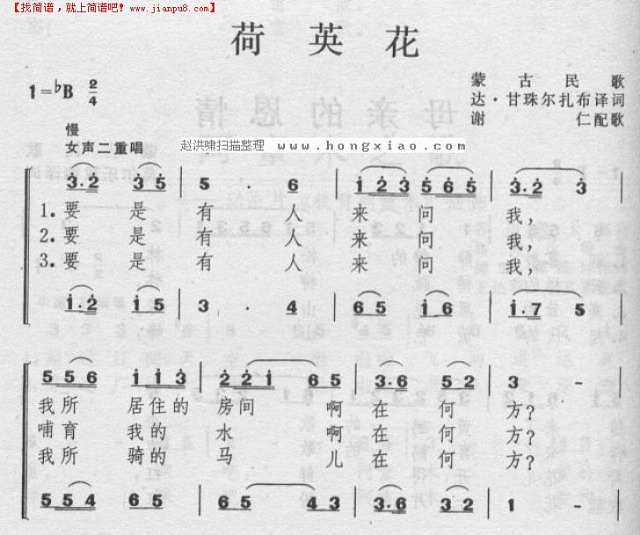 【找简谱，就上简谱吧！www.jianpu8.com】
荷英花
1=♭B 2/4
蒙古民歌
达·甘珠尔扎布译词
谢仁配歌
慢
女声二重唱
赵洪啸扫描整理 www.hongxiao.com
3·2 3 5 5 · 6 1 2 3 5 6 5 3·2 3
1.要是有人来问我，
2.要是有人来问我，
3.要是有人来问我，
1·2 1 5 3 · 4 6 5 1 6 1·7 5
5 5 6 1 1 3 2 2 1 6 5 3·6 5 2 3 -
我所居住的房间啊在何方？
哺育我的水啊在何方？
我所骑的马儿在何方？
5 5 4 6 5 6 5 4 3 6·2 7 6 1 -